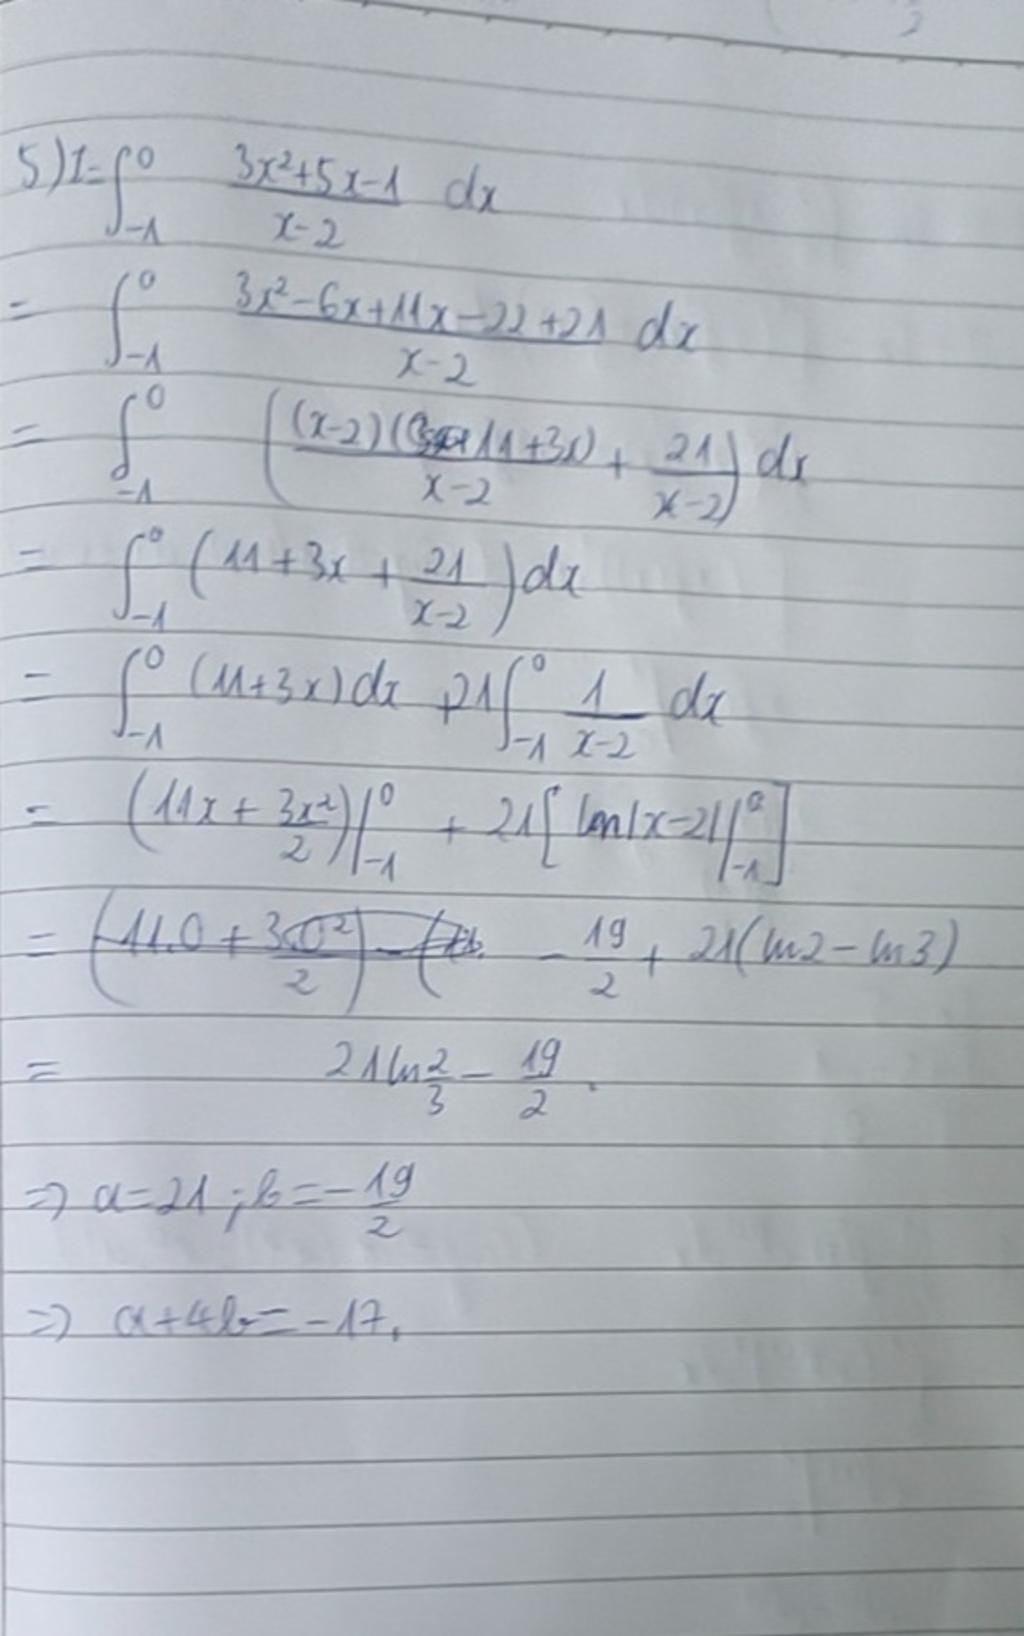 5) I = ∫_{-1}^{0} (3x²+5x-1)/(x-2) dx
= ∫_{-1}^{0} (3x²-6x+11x-22+21)/(x-2) dx
= ∫_{-1}^{0} ( (x-2)(11+3x)/(x-2) + 21/(x-2) ) dx
= ∫_{-1}^{0} (11+3x + 21/(x-2)) dx
= ∫_{-1}^{0} (11+3x) dx + 21 ∫_{-1}^{0} 1/(x-2) dx
= (11x + 3x²/2) |_{-1}^{0} + 21 [ ln|x-2| |_{-1}^{0} ]
= (11.0 + 3.0²/2) - ( - 19/2 + 21(ln2 - ln3)
= 21 ln 2/3 - 19/2 .
=> a = 21 ; b = -19/2
=> a+4b = -17.